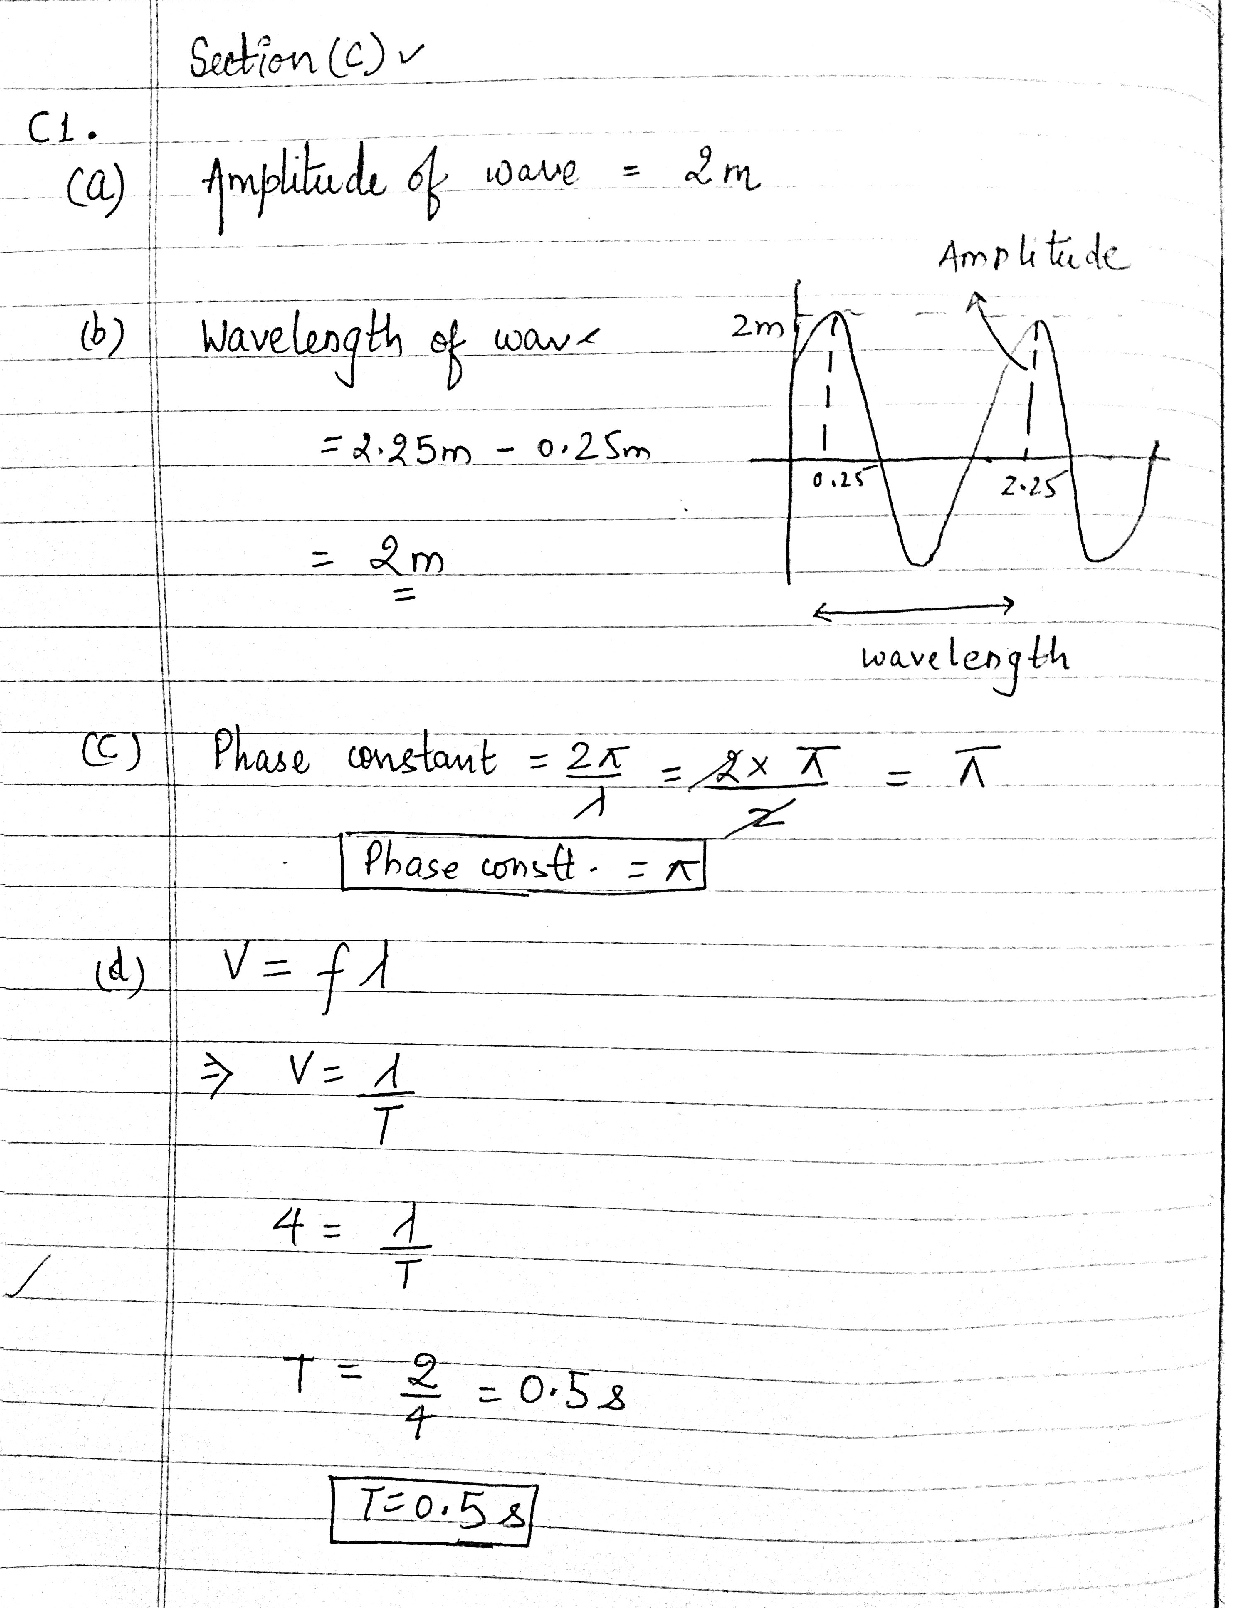 Section (C) ✓
C1.
(a) Amplitude of wave = 2m
Amplitude
(b) Wavelength of wave
2m
= 2.25m - 0.25m
0.25 2.25
= 2m
wavelength
(C) Phase constant = 2π/λ = 2 x π/2 = π
Phase constt. = π
(d) V = fλ
⇒ V = λ/T
4 = λ/T
T = 2/4 = 0.5 s
T = 0.5 s